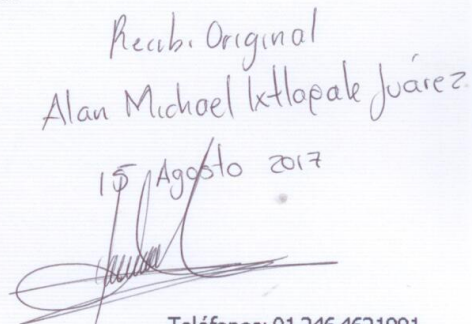 Recibi Original
Alan Michael Ixtlapale Juárez
15 Agosto 2017
Teléfonos: 01 246 4621991